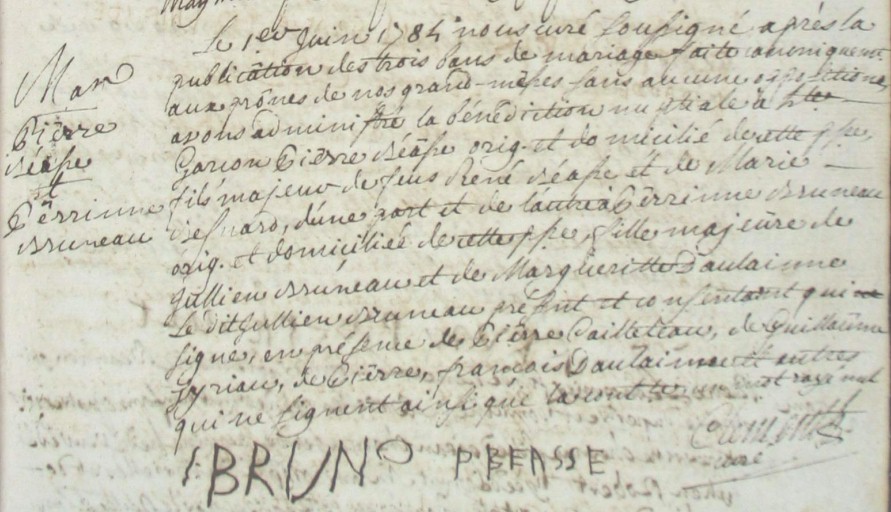 Le 1er Juin 1784 nous curé soussigné après la
Mar
publication des trois bans de mariage faite canoniquem.
aux prônes de nos grand-messes sans aucune opposition,
Pierre
avons administré la bénédiction nuptiale à
Béasse
Garcon Pierre Béasse orig. et domicilié de cette psse,
et
fils majeur de feus René Béasse et de Marie
Pérrinne
Besnard, d'une part et de l'autre à Pérrinne Bruneau
Bruneau
orig. et domiciliée de cette psse, fille majeure de
Jullien Bruneau et de Margueritte Daulainne
le dit Jullien Bruneau présent et consentant qui
signe, en présence de Pierre Cailleteau, de Guillaume
Gyriau, de Pierre, françois Daulainne et autres
qui ne signent ainsi que la est rayé nul
curé
J: BRUNO P BEASSE